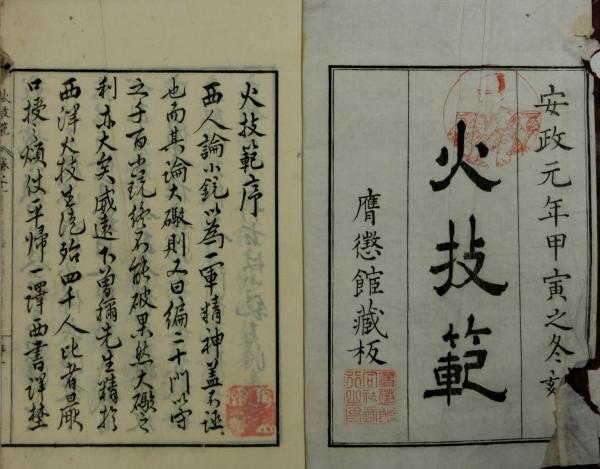 安政元年甲寅之冬刻
火技範
膺懲館藏板
火技範序
西人論小銃以為一軍精神蓋不誣
也而其論大礮則又曰編二十門以當
之千百小銃終不能破果然大礮之
利亦大矣威遠下曽禰先生精於
西洋火技生徒殆四千人比者厭
口授之煩仗平歸一譯西書詳整